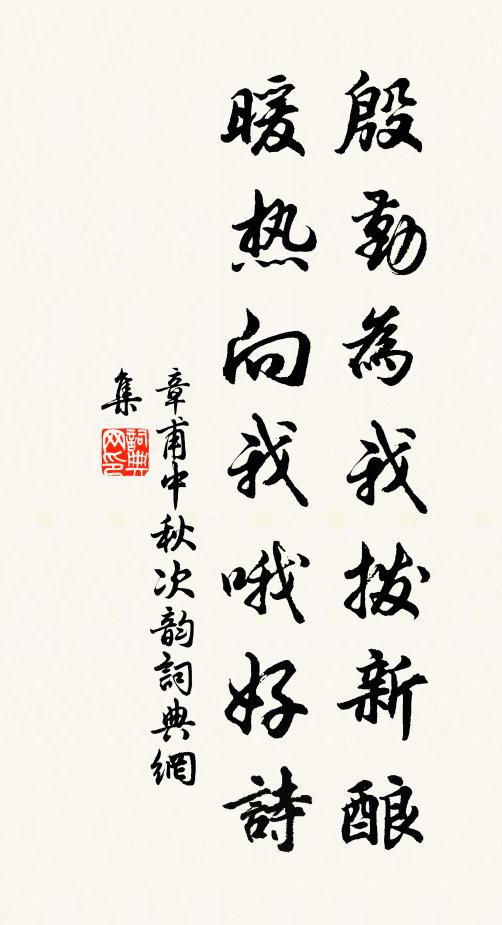 殷勤為我拨新酿
暖热向我哦好詩
章甫中秋次韵詞典網
集
詞典网印